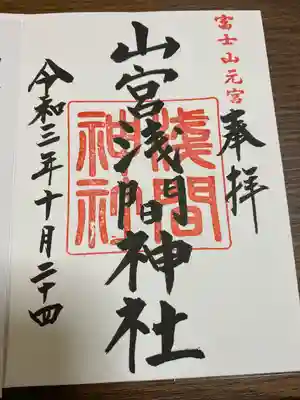 富士山元宮
奉拝
山宮浅間神社
淺間
神社
令和三年十月二十四